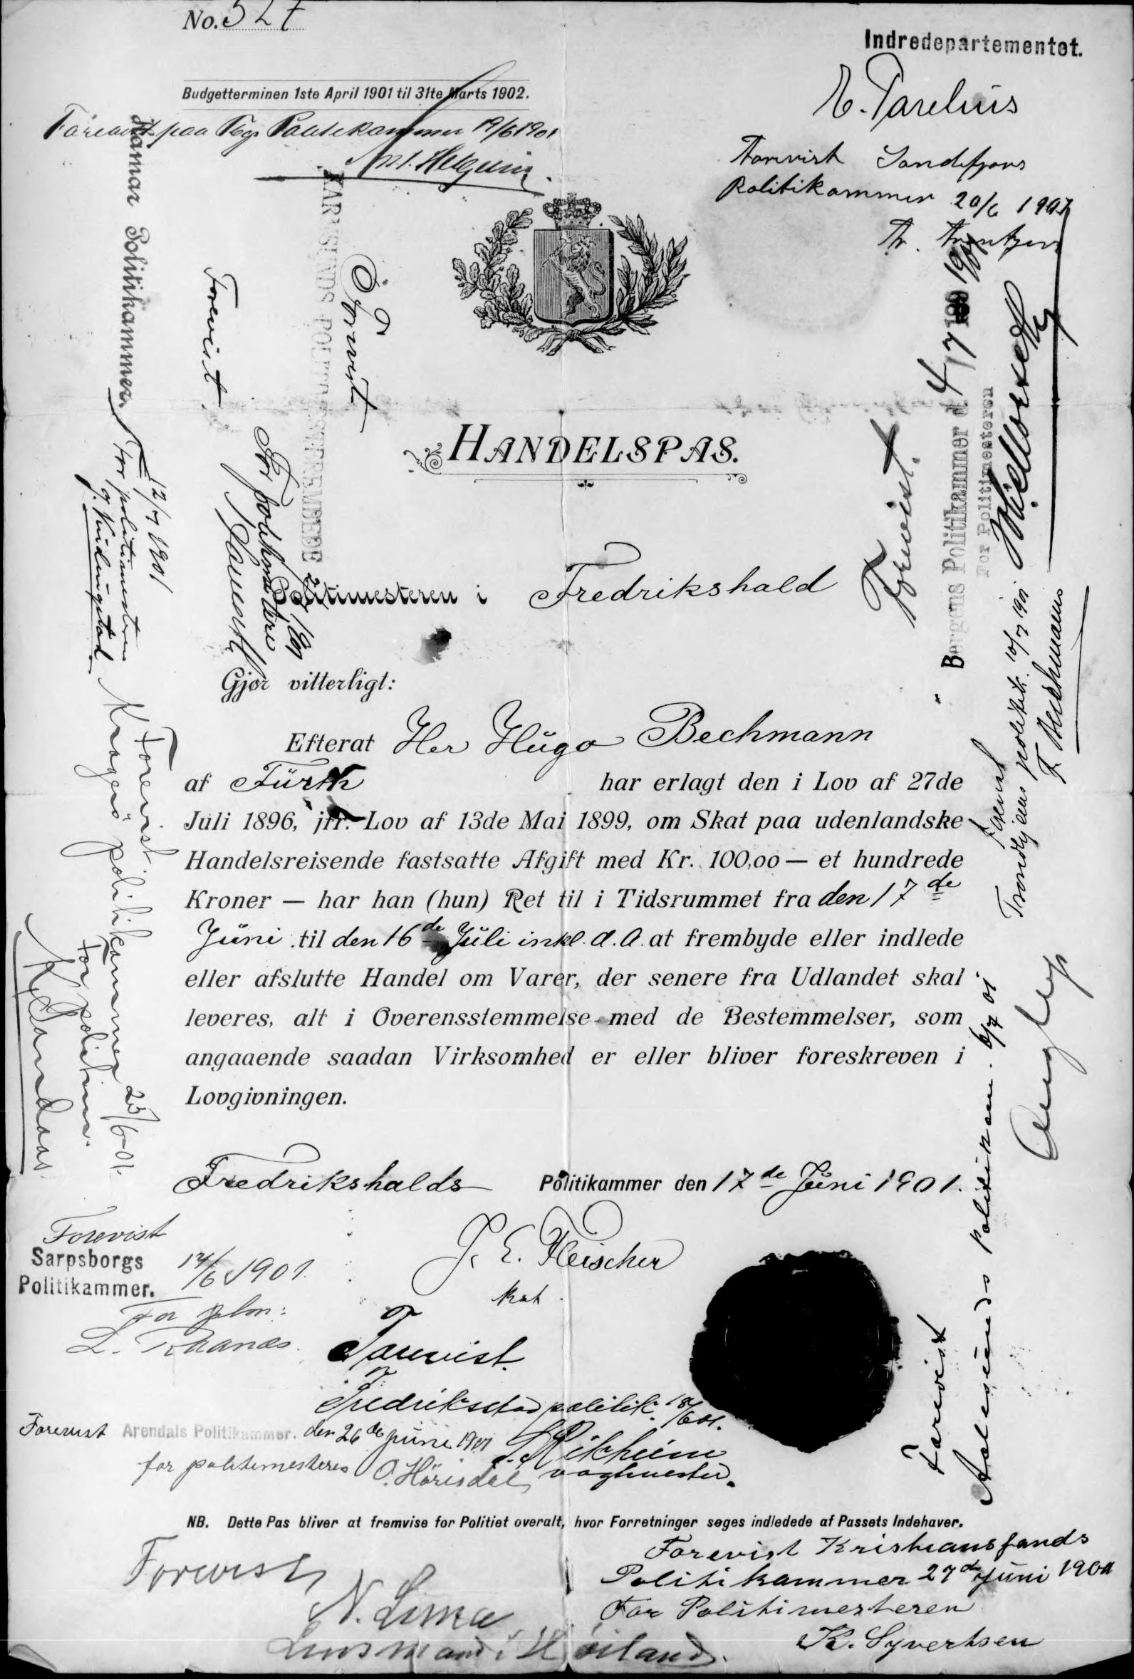 No. 527
Indredepartementet.
Budgetterminen 1ste April 1901 til 31te Marts 1902.
E. Parelius
Forevist paa Politikammer 19/6 1901
Forevist Sandefjords
Politikammer 20/6 1901
Hamar Politikammer
12/7 1901
For politimesteren
KARMSUNDS POLITIMESTEREMBEDE
Forevist
Forevist
HANDELSPAS.
Forevist.
Bergens Politikammer d. 4/7 1901
For Politimesteren
Politimesteren i Fredrikshald
Gjør vitterligt:
Efterat Her Hugo Bechmann
af Fürth har erlagt den i Lov af 27de
Juli 1896, jfr. Lov af 13de Mai 1899, om Skat paa udenlandske
Handelsreisende fastsatte Afgift med Kr. 100,00 — et hundrede
Kroner — har han (hun) Ret til i Tidsrummet fra den 17de
Juni til den 16de Juli inkl. d. A. at frembyde eller indlede
eller afslutte Handel om Varer, der senere fra Udlandet skal
leveres, alt i Overensstemmelse med de Bestemmelser, som
angaaende saadan Virksomhed er eller bliver foreskreven i
Lovgivningen.
Forevist
Trondhjems politik. 10/7 1901
Forevist.
Kragerø politikammer 25/6-01.
For politim.
Fredrikshalds Politikammer den 17de Juni 1901.
J. E. Fleischer
kst.
Forevist
Sarpsborgs
Politikammer. 17/6 1901.
L. Raanes.
Forevist.
Fredrikstad politik. 18/6 01.
vagtmester.
Forevist Arendals Politikammer. den 26de Juni 1901
for politimesteren
Forevist
Aalesunds Politikam. 6/7 01
NB. Dette Pas bliver at fremvise for Politiet overalt, hvor Forretninger søges indledede af Passets Indehaver.
Forevist
N. Lima
Lensmand i Høiland.
Forevist Kristianssands
Politikammer 27de Juni 1901
For Politimesteren
K. Syvertsen